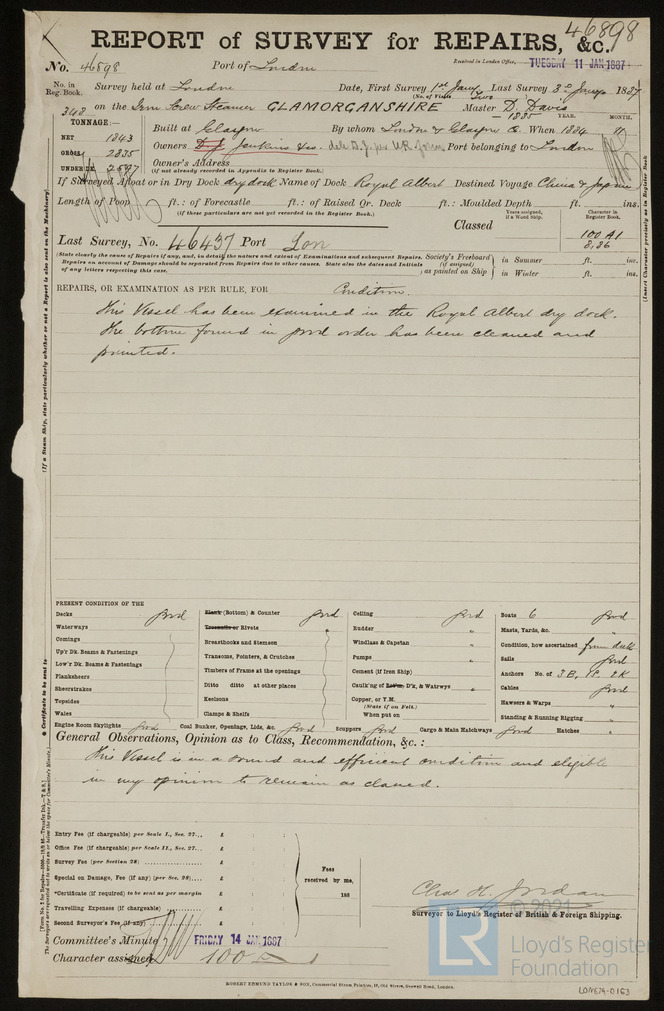 46898
REPORT of SURVEY for REPAIRS, &c.
No. 46898 Port of London Received in London Office, TUESDAY 11 JAN 1887
No. in Reg. Book. Survey held at London Date, First Survey 1st Jany Last Survey 3d Jany 1887
(No. of Visits Two
348 on the Iron Screw Steamer GLAMORGANSHIRE Master D. Davis
1885
TONNAGE:— YEAR. MONTH.
NET 1843 Built at Glasgow By whom London & Glasgow Co. When 1884 11
GROSS 2835 Owners D. J. Jenkins & Co. dele D.J. per U.R. form Port belonging to London
UNDER DK 2597 Owner's Address
(if not already recorded in Appendix to Register Book.)
If Surveyed Afloat or in Dry Dock dry dock Name of Dock Royal Albert Destined Voyage China & Japan
Length of Poop ft.: of Forecastle ft.: of Raised Qr. Deck ft.: Moulded Depth ft. ins.
(if these particulars are not yet recorded in the Register Book.)
Years assigned, if a Wood Ship. Character in Register Book.
Classed 100 A1
8,86
Last Survey, No. 46437 Port Lon
(State clearly the cause of Repairs if any, and, in detail, the nature and extent of Examinations and subsequent Repairs. Repairs on account of Damage should be separated from Repairs due to other causes. State also the dates and Initials of any letters respecting this case.
Society's Freeboard (if assigned) as painted on Ship in Summer ft. ins.
in Winter ft. ins.
REPAIRS, OR EXAMINATION AS PER RULE, FOR Condition.
This Vessel has been examined in the Royal Albert dry dock.
The bottom found in good order has been cleaned and
painted.
(If a Steam Ship, state particularly whether or not a Report is also sent on the Machinery)
(Insert Character precisely as in Register Book
PRESENT CONDITION OF THE
Decks good
Waterways
Comings
Up'r Dk. Beams & Fastenings
Low'r Dk. Beams & Fastenings
Planksheers
Sheerstrakes
Topsides
Wales
Engine Room Skylights good
Plank (Bottom) & Counter good
Treenails or Rivets "
Breasthooks and Stemson
Transoms, Pointers, & Crutches
Timbers of Frame at the openings
Ditto ditto at other places
Keelsons
Clamps & Shelfs
Coal Bunker, Openings, Lids, &c. good
Ceiling good
Rudder "
Windlass & Capstan "
Pumps "
Cement (if Iron Ship) "
Caulk'ng of D'k, & Watrwys "
Copper, or Y.M.
(State if on Felt.)
When put on
Scuppers good Cargo & Main Hatchways good
Boats 6 good
Masts, Yards, &c. "
Condition, how ascertained from deck
Sails good
Anchors No. of 3 B, 1S, 2K
Cables good
Hawsers & Warps "
Standing & Running Rigging "
Hatches "
General Observations, Opinion as to Class, Recommendation, &c.:
This Vessel is in a sound and efficient condition and eligible
in my opinion to remain as classed.
Certificate to be sent to
Entry Fee (if chargeable) per Scale I., Sec. 27... £
Office Fee (if chargeable) per Scale II., Sec. 27... £
Survey Fee (per Section 28) £
Special on Damage, Fee (if any) (per Sec. 28).... £
*Certificate (if required) to be sent as per margin
Travelling Expenses (if chargeable) £
Second Surveyor's Fee (if any) £
Fees received by me,
188
Chas. H. Jordan
Surveyor to Lloyd's Register of British & Foreign Shipping.
Committee's Minute FRIDAY 14 JAN 1887
Character assigned 100 A
© 2021
LR
Lloyd's Register
Foundation
ROBERT EDMUND TAYLOR & SON, Commercial Steam Printers, 19, Old Street, Goswell Road, London.
LON674-0163